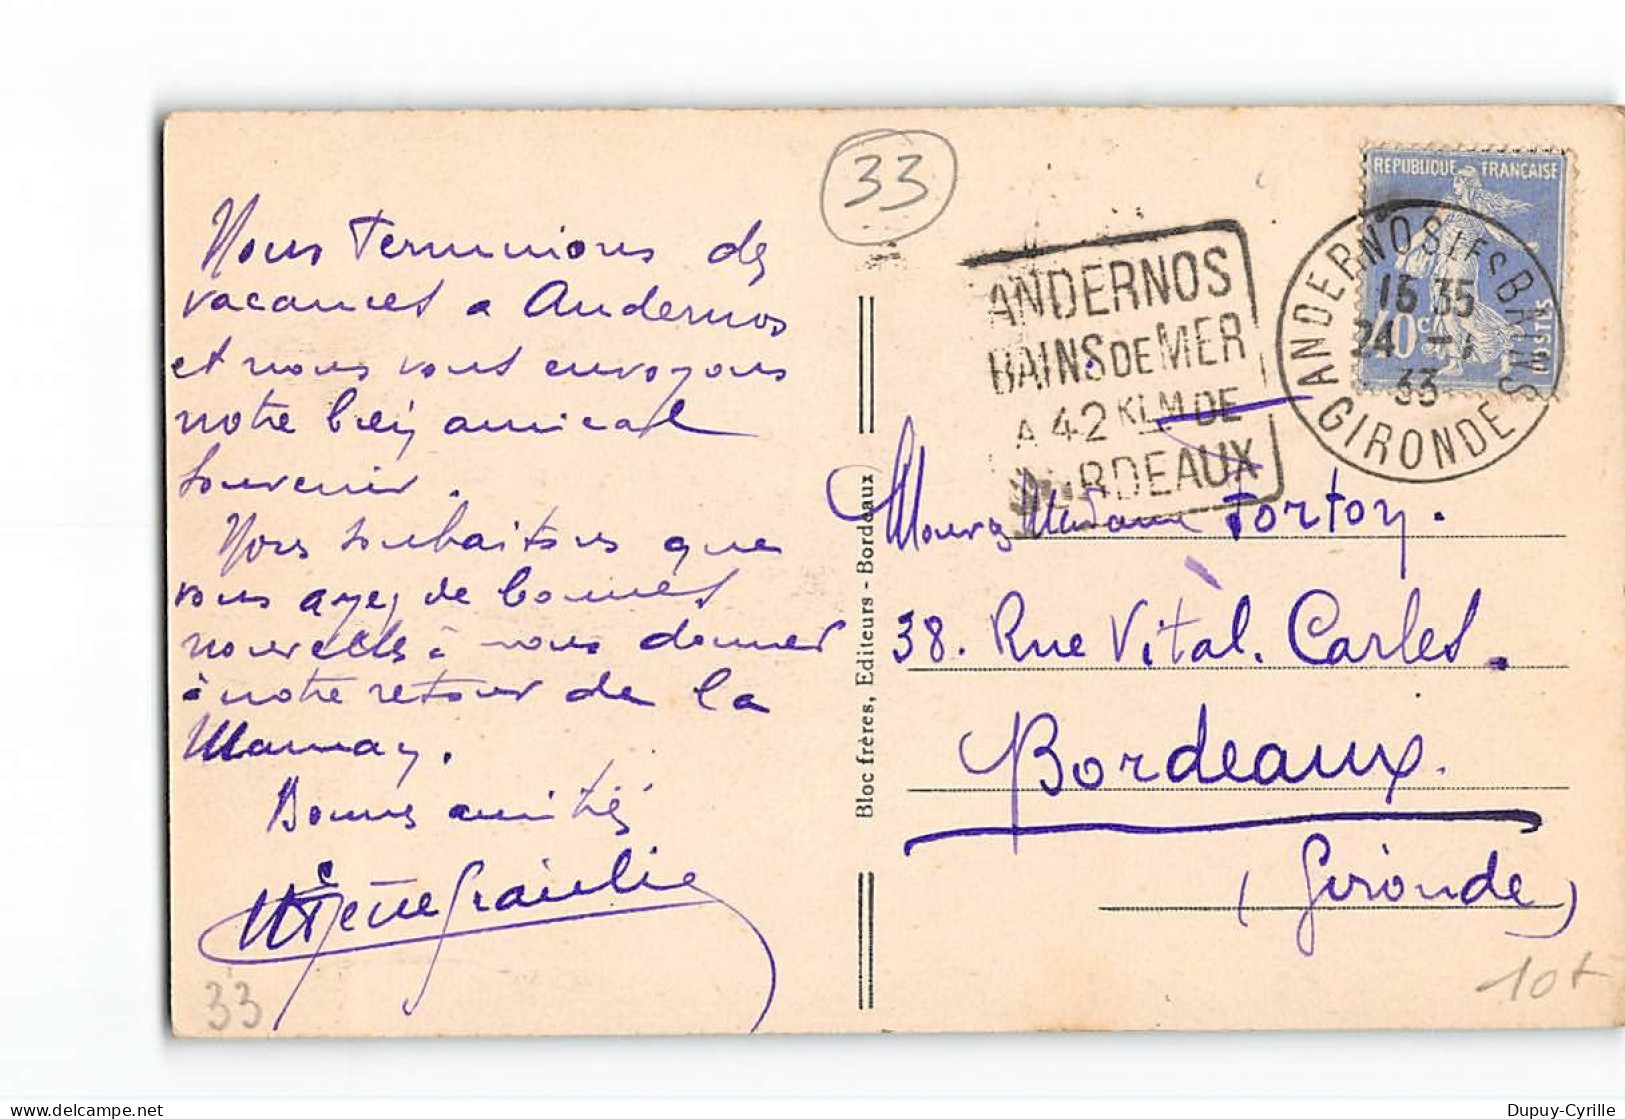 33
Nous terminions des
vacances a Andernos
et nous vous envoyons
notre bien amical
souvenir.
Nous souhaitons que
vous ayez de bonnes
nouvelles à nous donner
à notre retour de
Bonnes amitiés
33
Bloc frères, Editeurs - Bordeaux
ANDERNOS
BAINS DE MER
A 42 KLM DE
BORDEAUX
REPUBLIQUE FRANÇAISE
40c
POSTES
ANDERNOS LES BAINS
15 35
24 -1
33
GIRONDE
Madame Forton.
38. Rue Vital. Carles.
Bordeaux.
(Gironde)
10+
Dupuy-Cyrille